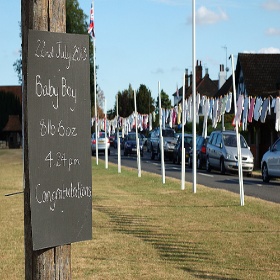 22nd July 2013
Baby Boy
8lb 6oz
4.24pm
Congratulations